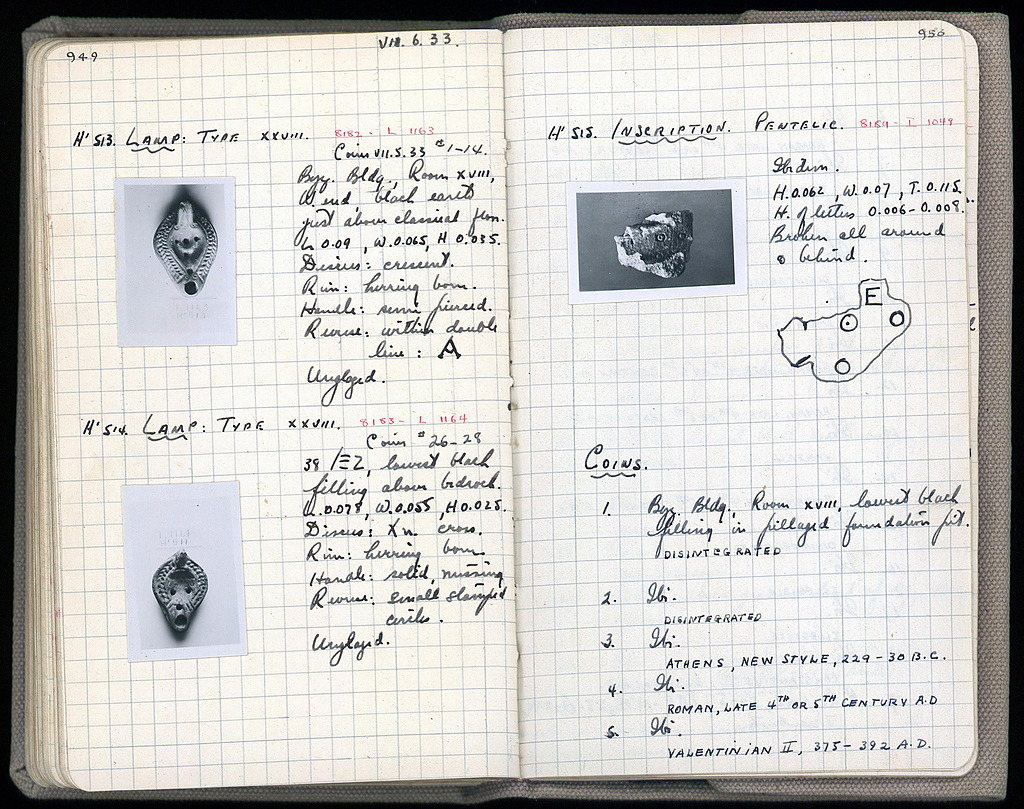 949
VII. 6. 33.
H' 513. LAMP: TYPE XXVIII. 8182 - L 1163
Coins VII.5.33 #1-14.
Byz. Bldg., Room XVIII,
W end, black earth
just above classical floor.
L 0.09, W. 0.065, H 0.035.
Discus: crescent.
Rim: herring bone.
Handle: semi pierced.
Reverse: within double
line: A
Unglazed.
H' 514. LAMP: TYPE XXVIII. 8183 - L 1164
Coins #26-28
38/ΞΖ, lowest black
filling above bedrock.
L. 0.078, W. 0.055, H 0.025.
Discus: Xn. cross.
Rim: herring bone.
Handle: solid, missing
Reverse: small stamped
circles.
Unglazed.
950
H' 515. INSCRIPTION. PENTELIC. 8184 - I 1049
Ibidem.
H. 0.062, W. 0.07, T. 0.115.
H. of letters 0.006-0.008.
Broken all around
& behind.
E
COINS.
1. Byz. Bldg., Room XVIII, lowest black
filling in pillaged foundation pit.
DISINTEGRATED
2. Ibi.
DISINTEGRATED
3. Ibi.
ATHENS, NEW STYLE, 229-30 B.C.
4. Ibi.
ROMAN, LATE 4TH OR 5TH CENTURY A.D
5. Ibi.
VALENTINIAN II, 375-392 A.D.